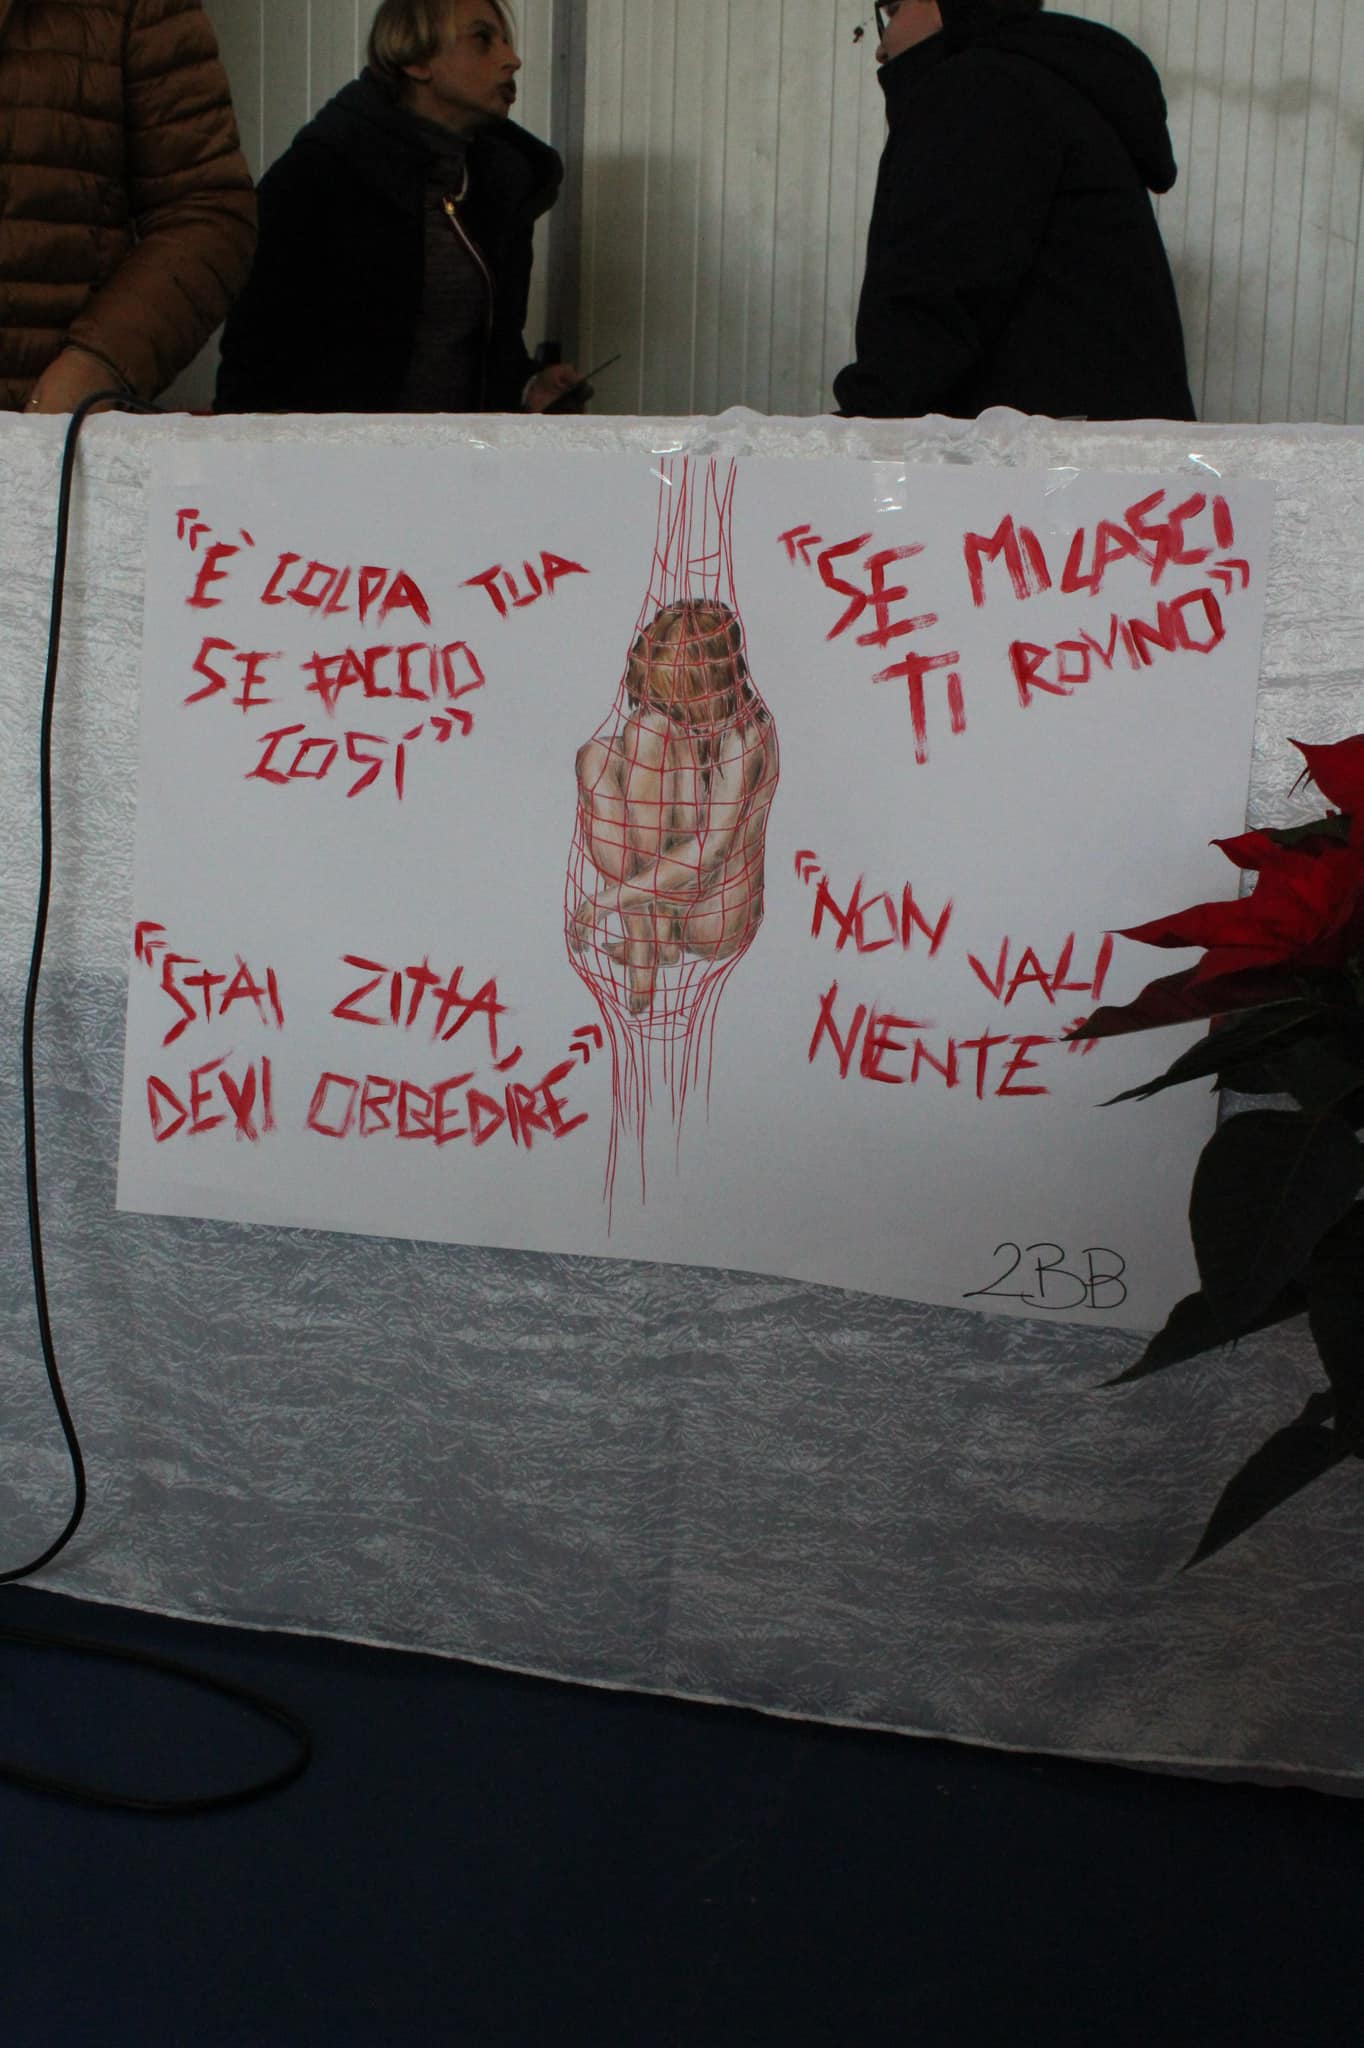 "È COLPA TUA
SE FACCIO
COSÍ"
"SE MI LASCI
TI ROVINO"
"STAI ZITTA,
DEVI OBBEDIRE"
"NON VALI
NIENTE"
2BB